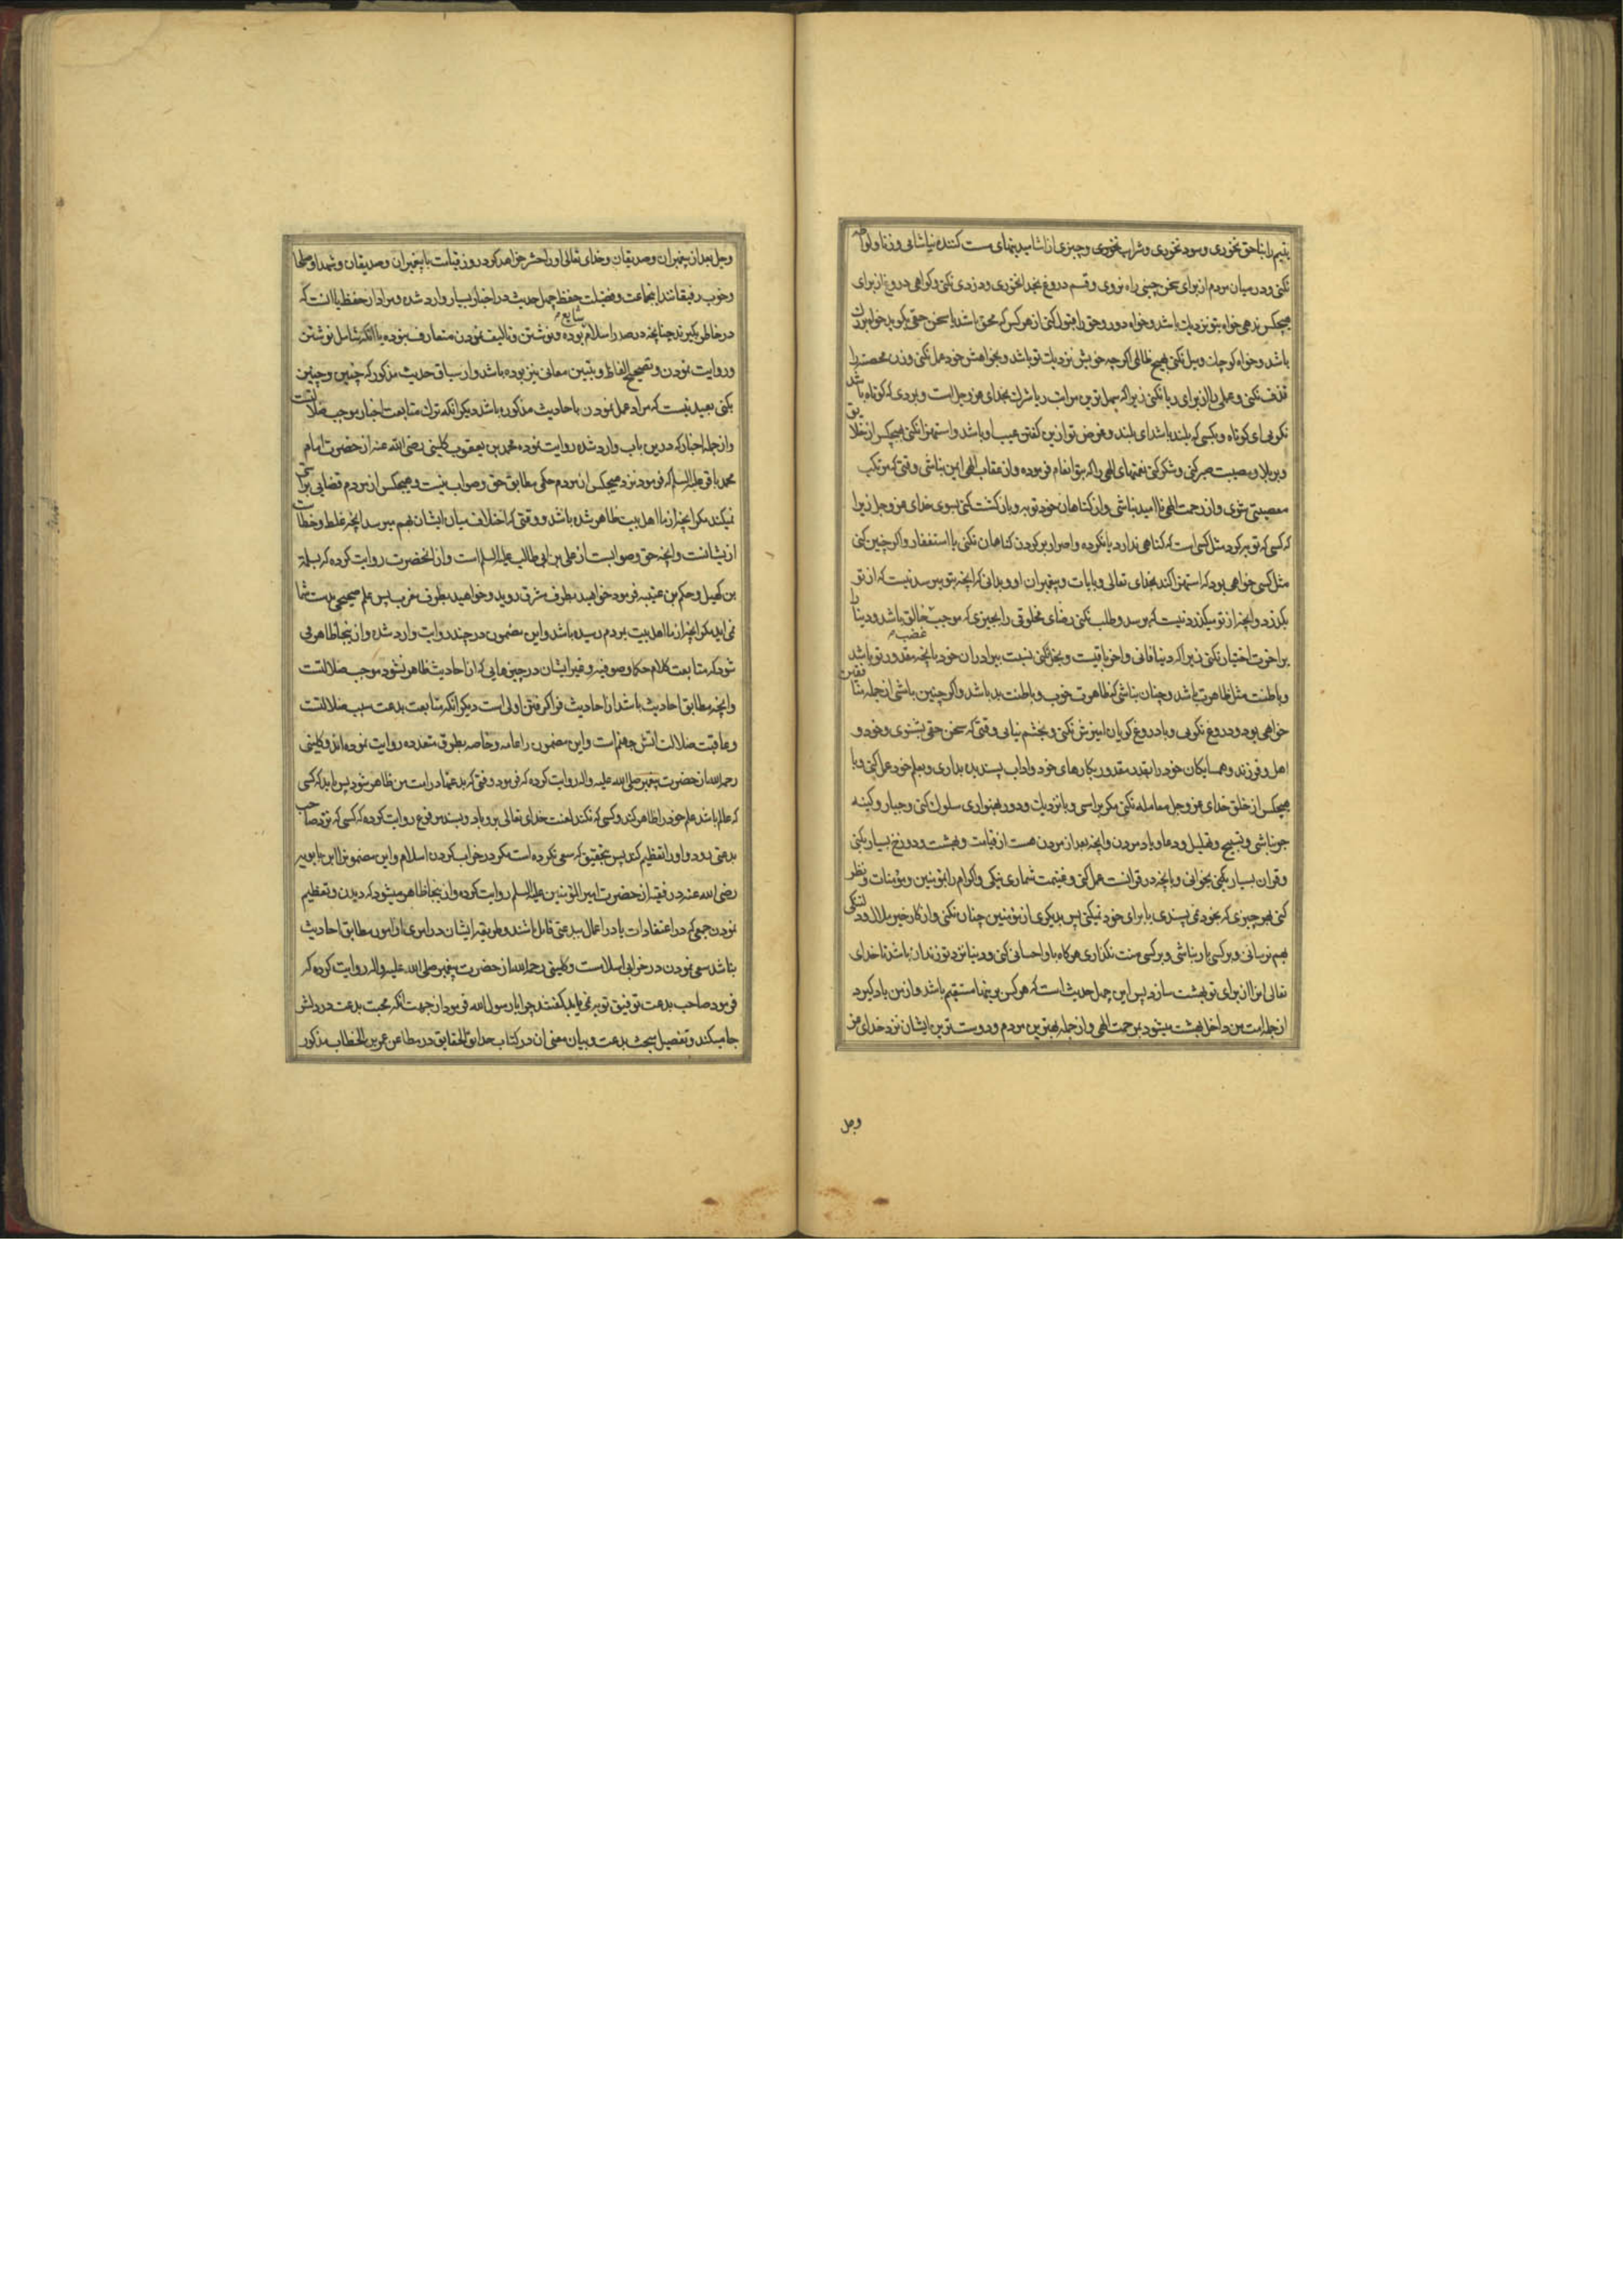 یتیم را بناحق نخوری و سود نخوری و شراب نخوری و چیزی از اشامیدنیهای مست کننده نیاشامی و زنا و لواطه
نکنی و در میان مردم از برای سخن چینی راه نروی و قسم دروغ بخدا نخوری و دزدی نکنی و کواهی دروغ از برای
هیچکس ندهی خواه بتو نزدیک باشد و خواه دور و حق را قبول کنی از هر کس که محق باشد یا سخن حقی کوید خواه بزرک
باشد و خواه کوچک و میل نکنی بهیچ ظالمی اکرچه خویش نزدیک تو باشد و بخواهش خود عمل نکنی و زن محصنه را
قذف نکنی و عملی را از برای ریا نکنی زیرا که سهل ترین مراتب ریا شرک بخدای عز و جل است و بمردی که کوتاه باشد
نکویی ای کوتاه و بکسی که بلند باشد ای بلند و غرض تو ازین کفتن عیب او باشد و استهزا نکنی بهیچکس از خلایق
و بر بلا و مصیبت صبر کنی و شکر کنی نعمتهای الهی را که بتو انعام فرموده و از عقاب الهی ایمن نباشی وقتی که مرتکب
معصیتی شوی و از رحمت الهی ناامید نباشی و از کناهان خود توبه و بازکشت کنی بسوی خدای عز و جل زیرا
که کسی که توبه کرد مثل کسی است که کناهی ندارد یا نکرده و اصرار بر کردن کناهان نکنی با استغفار و اکر چنین کنی
مثل کسی خواهی بود که استهزا کند بخدای تعالی و بایات و پیغمبران او و بدانی که انچه بتو میرسد نیست که از تو
بکذرد و انچه از تو میکذرد نیست که برسد و طلب نکنی رضای مخلوقی را بچیزی که موجب غضب خالق باشد و دنیا را
بر اخرت اختیار نکنی زیرا که دنیا فانی و اخرت باقیست و بخل نکنی نسبت ببرادران خود بانچه مقدور تو باشد
و باطنت مثل ظاهرت باشد و چنان نباشی که ظاهرت خوب و باطنت بد باشد و اکر چنین باشی از جمله منافقین
خواهی بود و دروغ نکویی و با دروغ کویان امیزش نکنی و بخشم نیایی وقتی که سخن حقی بشنوی و خود و
اهل و فرزند و همسایکان خود را بقدر مقدور بکارهای خود و اداب پسندیده بداری و بعلم خود عمل کنی و با
هیچکس از خلق خدای عز و جل معامله نکنی مکر براستی و با نزدیک و دور بهمواری سلوک کنی و جبار و کینه
جو نباشی و تسبیح و تهلیل و دعا و یاد مردن و انچه بعد از مردن هست از قیامت و بهشت و دوزخ بسیار بکنی
و قران بسیار بخوانی و بانچه در قرانست عمل کنی و غنیمت شماری نیکی و اکرام را بمؤمنین و مؤمنات و نظر
کنی بهر چیزی که بخود نمی پسندی یا برای خود نمیکنی پس بدیکری از مؤمنین چنان نکنی و از کار خیر ملال و دلتنکی
بهم نرسانی و بر کسی بار نباشی و بر کسی منت نکذاری هرکاه باو احسانی کنی و دنیا نزد تو زندان باشد تا خدای
تعالی انرا از برای تو بهشت سازد پس این چهل حدیث است که هر کس برینها مستقیم باشد و از من یاد کیرد
از جمله امت من داخل بهشت میشود برحمت الهی و از جمله بهترین مردم و دوست ترین ایشان نزد خدای عز
وجل
وجل بعد از پیغمبران و صدیقان و خدای تعالی او را حشر خواهد کرد در روز قیامت با پیغمبران و صدیقان و شهدا و صلحا
و خوب رفیقانند اینجماعت و فضیلت حفظ چهل حدیث در اخبار بسیار وارد شده و مراد از حفظ یا انست که
در خاطر بکیرند چنانچه در صدر اسلام شایع بوده و نوشتن و تالیف نمودن متعارف نبوده یا انکه شامل نوشتن
و روایت نمودن و تصحیح الفاظ و تبیین معانی نیز بوده باشد و از سیاق حدیث مذکور که چنین و چنین
بکنی بعید نیست که مراد عمل نمودن باحادیث مذکوره باشد دیکر انکه ترک متابعت اخبار موجب ضلالتست
و از جمله اخبار که درین باب وارد شده روایت نموده محمد بن یعقوب کلینی رضی الله عنه از حضرت امام
محمد باقر علیه السلم که فرمود نزد هیچکس از مردم حکمی مطابق حق و صواب نیست و هیچکس از مردم قضایی براستی
نمیکند مکر انچه از ما اهل بیت ظاهر شده باشد و وقتی که اختلاف میان ایشان بهم میرسد انچه غلط و خطاست
از یشانست و انچه حق و صوابست از علی بن ابی طالب علیه السلم است و از انحضرت روایت کرده که بسلمة
بن کهیل و حکم بن عتیبه فرمود خواهید بطرف شرق روید و خواهید بطرف مغرب پس علم صحیحی بدست شما
نمی اید مکر انچه از ما اهل بیت بمردم رسیده باشد و این مضمون در چند روایت وارد شده و ازینجا ظاهر می
شود که متابعت کلام حکما و صوفیه و غیر ایشان در چیزهایی که از احادیث ظاهر نشود موجب ضلالتست
و انچه مطابق احادیث باشد از احادیث فرا کرفتن اولی است دیکر انکه متابعت بدعت سبب ضلالتست
و عاقبت ضلالت اتش جهنم است و این مضمون را عامه و خاصه بطرق متعدده روایت نموده اند و کلینی
رحمه الله از حضرت پیغمبر صلی الله علیه واله روایت کرده که فرمود وقتی که بدعتها در امت من ظاهر شود پس باید که کسی
که عالم باشد علم خود را ظاهر کند و کسی که نکند لعنت خدای تعالی برو باد و بسند مرفوع روایت کرده که کسی که نزد صاحب
بدعتی رود و او را تعظیم کند پس بتحقیق که سعی کرده است مکر در خراب کردن اسلام و این مضمونرا ابن بابویه
رضی الله عنه در فقیه از حضرت امیر المؤمنین علیه السلم روایت کرده و ازینجا ظاهر میشود که دیدن و تعظیم
نمودن جمعی که در اعتقادات یا در اعمال ببدعتی قایل باشند و طریقه ایشان در امری از امور مطابق احادیث
نباشد سعی نمودن در خرابی اسلامست و کلینی رحمه الله از حضرت پیغمبر صلی الله علیه واله روایت کرده که
فرمود صاحب بدعت توفیق توبه نمی یابد کفتند چرا یا رسول الله فرمود از جهت انکه محبت بدعت در دلش
جا میکند و تفصیل مبحث بدعت و بیان معنی ان در کتاب حدایق الحقایق در مطاعن عمر بن الخطاب مذکور